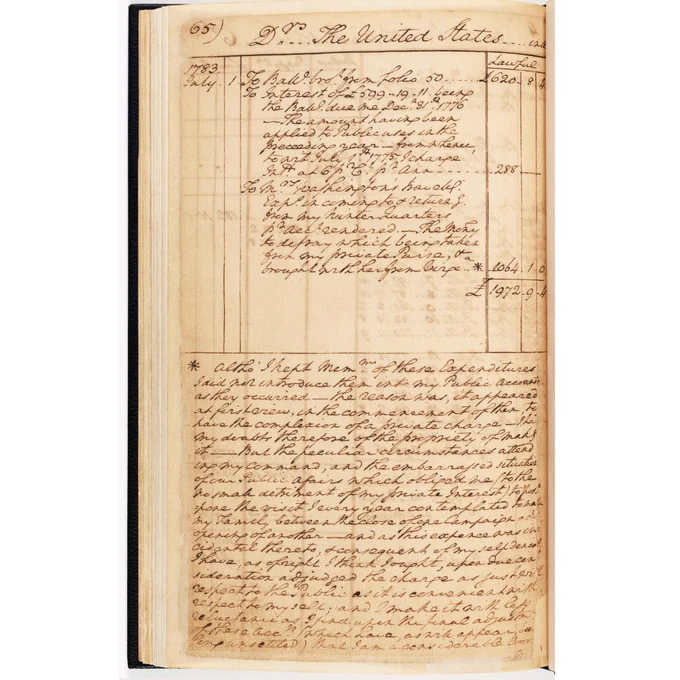 65)
Drs.... The United States .... in a
Lawful
1783
July. 1. To Ballce. brot. from folio 50 ........ £620.. 8.. 4
To Interest of £599..19..11. being
the Ballce. due me Decr. 31st. 1776
— The amount having been
applied to Public uses in the
preceeding year — from whence
to
July
1775 I charge
Intt. at 6 pr. Ct. pr. Ann ...... 288..—
To Mrs. Washington's travellg.
Exps. in coming to & returng.
from my Winter Quarters
pr. acct. rendered. — The Money
to defray which being taken
from my private Purse, & a
brought with her from Virga.. * 1064.. 1.. 0
£ 1972.. 9.. 4
* Altho' I kept Memms. of these Expenditures
I did not introduce them into my Public Accounts
as they occurred — the reason was, it appeared
at first view, in the commencement of them, to
have the complexion of a private charge — I had
my doubts therefore of the propriety of makg.
it. — But the peculiar circumstances attend
ing my command, and the embarrassed situation
of our Public affairs which obliged me (to the
no small detriment of my private Interest) to post
pone the visit I every year contemplated to make
my Family between the close of one Campaign &
opening of another — and as this expence was inci
cidental thereto, & consequent of my self denial
I have, as of right I think I ought, upon due con
sideration adjudged the charge as just with
respect to the Public as it is convenient with
respect to my self; and I make it with less
reluctance as I find upon the final adjustmt
of these accts. (which have, as will appear, been
long unsettled) that I am a considerable